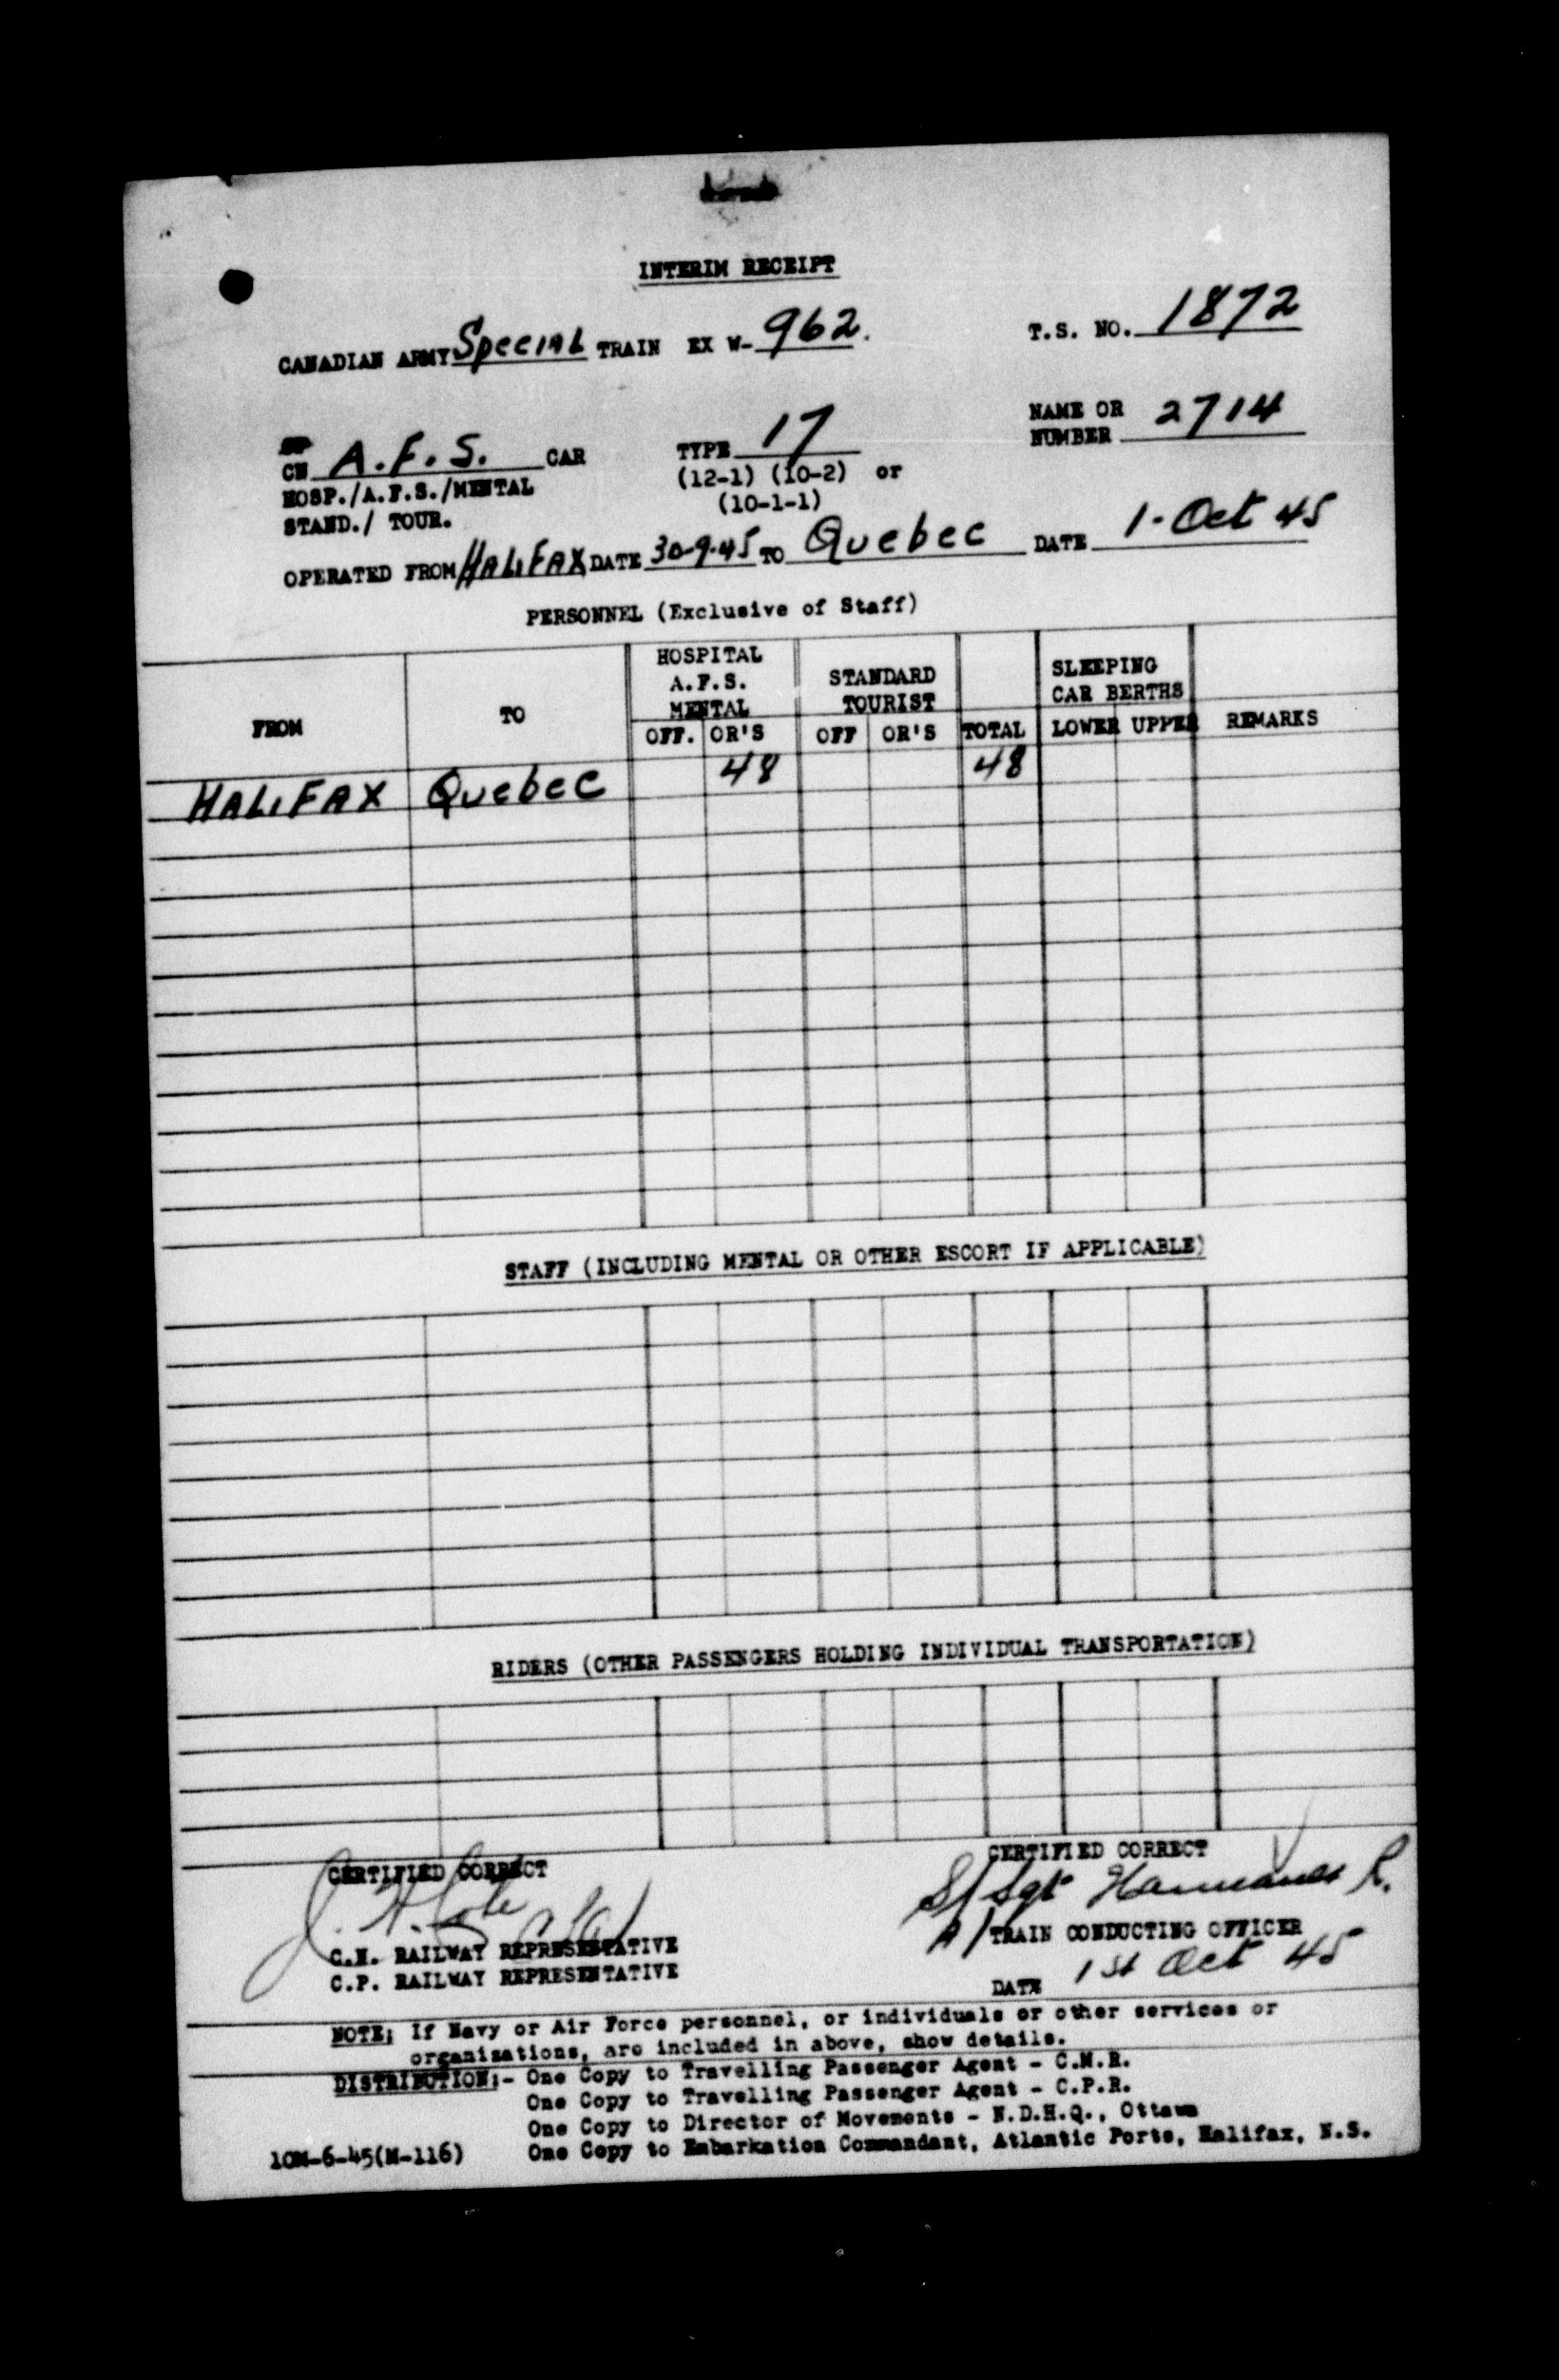 INTERIM RECEIPT
CANADIAN ARMY Special TRAIN EX W- 962. T.S. NO. 1872
CN A.F.S. CAR TYPE 17 NAME OR NUMBER 2714
HOSP./A.F.S./MENTAL (12-1) (10-2) or
STAND./ TOUR. (10-1-1)
OPERATED FROM HALIFAX DATE 30-9-45 TO Quebec DATE 1-Oct 45
PERSONNEL (Exclusive of Staff)
FROM TO HOSPITAL A.F.S. MENTAL STANDARD TOURIST SLEEPING CAR BERTHS
OFF. OR'S OFF OR'S TOTAL LOWER UPPER REMARKS
HALIFAX Quebec 48 48
STAFF (INCLUDING MENTAL OR OTHER ESCORT IF APPLICABLE)
RIDERS (OTHER PASSENGERS HOLDING INDIVIDUAL TRANSPORTATION)
CERTIFIED CORRECT CERTIFIED CORRECT
S/Sgt R.
C.N. RAILWAY REPRESENTATIVE A/TRAIN CONDUCTING OFFICER
C.P. RAILWAY REPRESENTATIVE DATE 1st Oct 45
NOTE; If Navy or Air Force personnel, or individuals or other services or
organizations, are included in above, show details.
DISTRIBUTION:- One Copy to Travelling Passenger Agent - C.N.R.
One Copy to Travelling Passenger Agent - C.P.R.
One Copy to Director of Movements - N.D.H.Q., Ottawa
10M-6-45(M-116) One Copy to Embarkation Commandant, Atlantic Ports, Halifax, N.S.